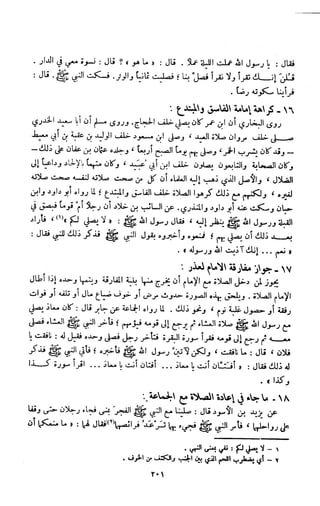 فقال : يا رسول الله عملت الليلة عملاً . قال : « ما هو » ؟ قال : نسوة معي في الدار .
قلن إنك تقرأ ولا نقرأ فصلّ بنا ؛ فصليت ثمانياً والوتر . فسكت النبي ﷺ . قال :
فرأينا سكوته رضاً .
١٦ - كراهة إمامة الفاسق والمبتدع :
روى البخاري أن ابن عمر كان يصلي خلف الحجاج. وروى مسلم أن أبا سعيد الخدري
صلى خلف مروان صلاة العيد ، وصلى ابن مسعود خلف الوليد بن عقبة بن أبي معيط
- وقد كان يشرب الخمر ، وصلى بهم يوماً الصبح أربعاً ، وجلده عثمان بن عفان على ذلك -
وكان الصحابة والتابعون يصلون خلف ابن أبي عبيد ، وكان متهماً بالإلحاد وداعياً إلى
الضلال ، والأصل الذي ذهب إليه العلماء أن كل من صحت صلاته لنفسه صحت صلاته
لغيره ، ولكنهم مع ذلك كرهوا الصلاة خلف الفاسق والمبتدع ؛ لما رواه أبو داود وابن
حبان وسكت عنه أبو داود والمنذري. عن السائب بن خلاد أن رجلاً أمّ قوماً فبصق في
القبلة ورسول الله ﷺ ينظر إليه ، فقال رسول الله ﷺ : « لا يصلي لكم »(١) ، فأراد
بعد ذلك أن يصلي بهم ؛ فمنعوه وأخبروه بقول النبي ﷺ فذكر ذلك للنبي فقال :
« نعم ... إنك آذيت الله ورسوله » .
١٧ - جواز مفارقة الإمام لعذر :
يجوز لمن دخل الصلاة مع الإمام أن يخرج منها بنية المفارقة ويتمها وحده إذا أطال
الإمام الصلاة . ويلحق بهذه الصورة حدوث مرض أو خوف ضياع مال أو تلفه أو فوات
رفقة أو حصول غلبة نوم ، ونحو ذلك . لما رواه الجماعة عن جابر قال : كان معاذ يصلي
مع رسول الله ﷺ صلاة العشاء ثم يرجع إلى قومه فيؤمهم ؛ فأخر النبي ﷺ العشاء فصلى
معه ثم رجع إلى قومه فقرأ سورة البقرة فتأخر رجل فصلى وحده فقيل له : نافقت يا
فلان ، قال : ما نافقت ، ولكن لآتين رسول الله ﷺ فأخبره ؛ فأتى النبي ﷺ فذكر
له ذلك فقال : « أفتان أنت يا معاذ ... أفتان أنت يا معاذ ... اقرأ سورة كذا
وكذا » .
١٨ - ما جاء في إعادة الصلاة مع الجماعة :
عن يزيد بن الأسود قال : صلينا مع النبي ﷺ الفجر بمنى فجاء رجلان حتى وقفا
على رواحلهما ، فأمر النبي ﷺ فجيء بهما ترعد فرائصهما(٢) فقال لهما : « ما منعكما أن
١ - لا يصلي لكم : نفي بمعنى النهي .
٢ - أي يضطرب اللحم الذي بين الجنب والكتف من الخوف .
٢٠١